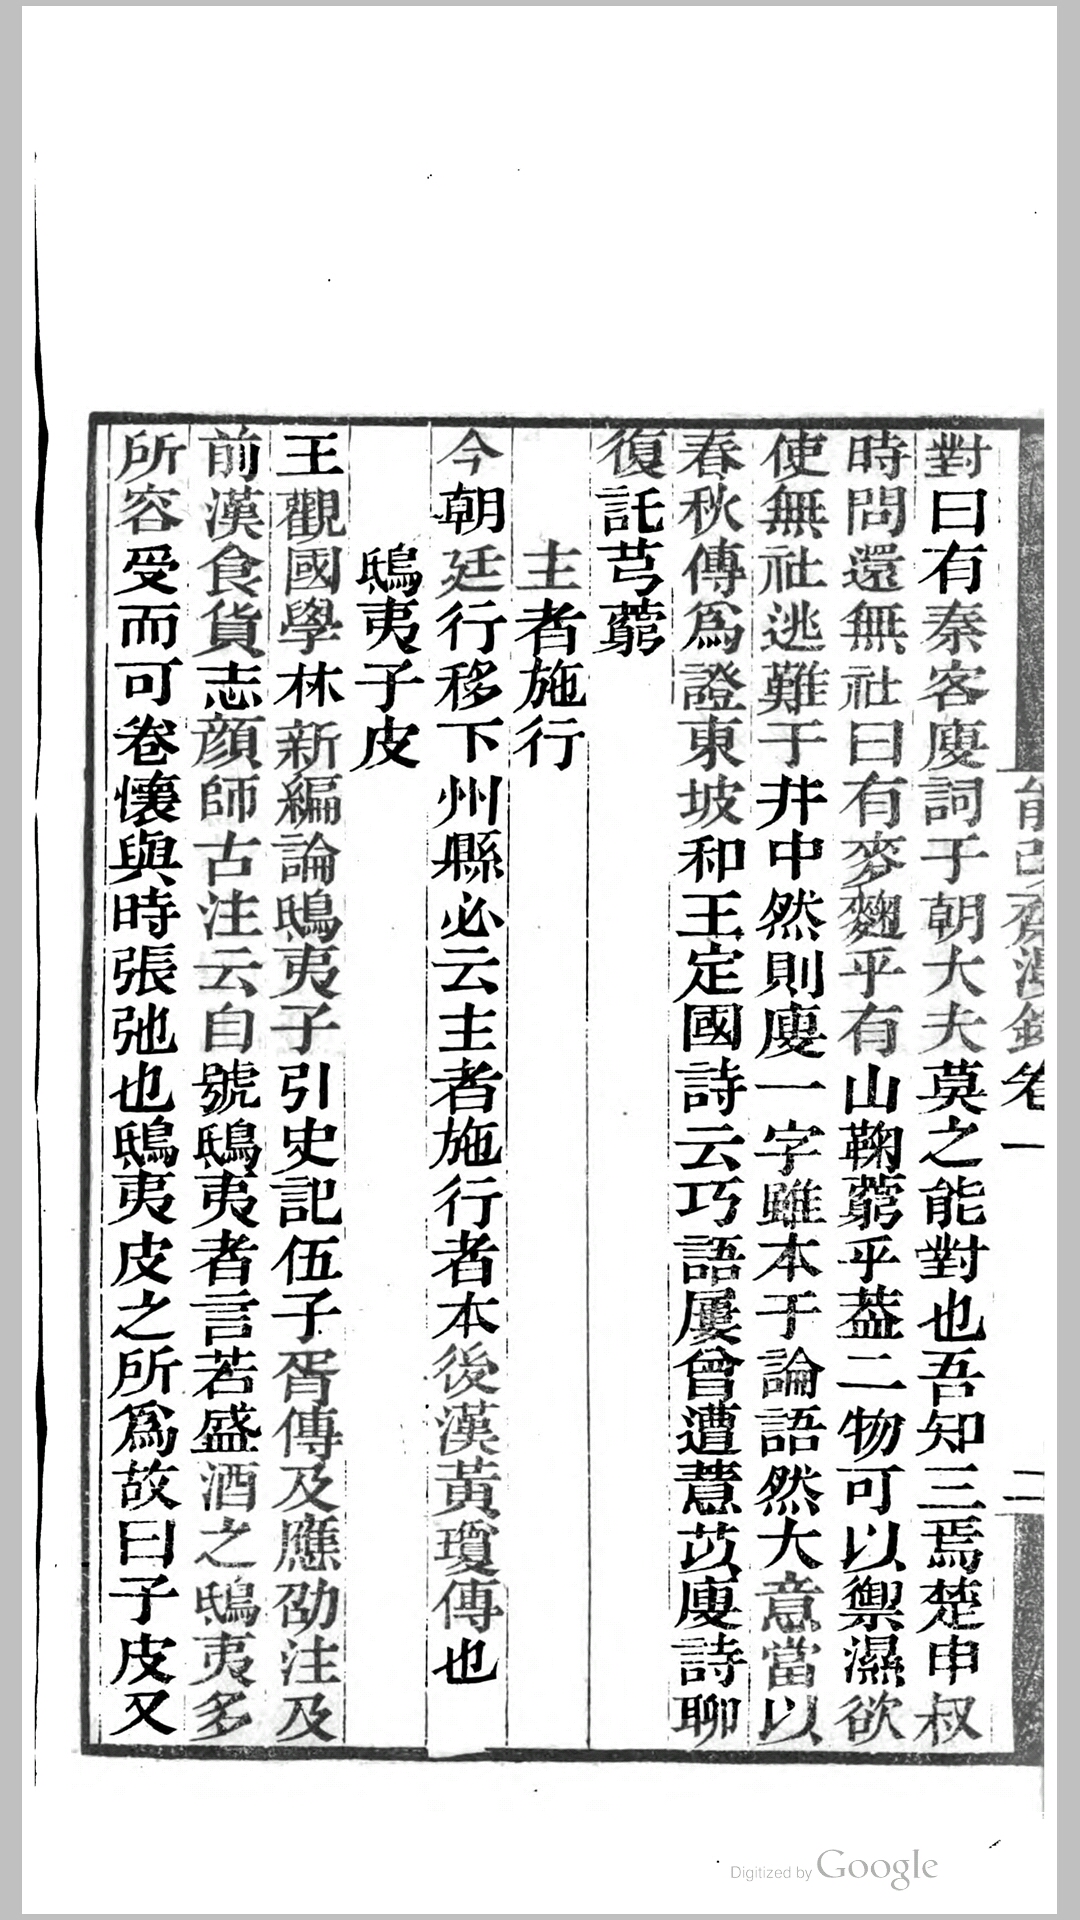 能改齋漫錄卷一 二
對曰有秦客廋詞于朝大夫莫之能對也吾知三焉楚申叔
時問還無社曰有麥麴乎有山鞠藭乎葢二物可以禦濕欲
使無社逃難于井中然則廋一字雖本于論語然大意當以
春秋傳爲證東坡和王定國詩云巧語屢曾遭薏苡廋詩聊
復託芎藭
主者施行
今朝廷行移下州縣必云主者施行者本後漢黃瓊傳也
鴟夷子皮
王觀國學林新編論鴟夷子引史記伍子胥傳及應劭注及
前漢食貨志顏師古注云自號鴟夷者言若盛酒之鴟夷多
所容受而可卷懷與時張弛也鴟夷皮之所爲故曰子皮又
Digitized by Google